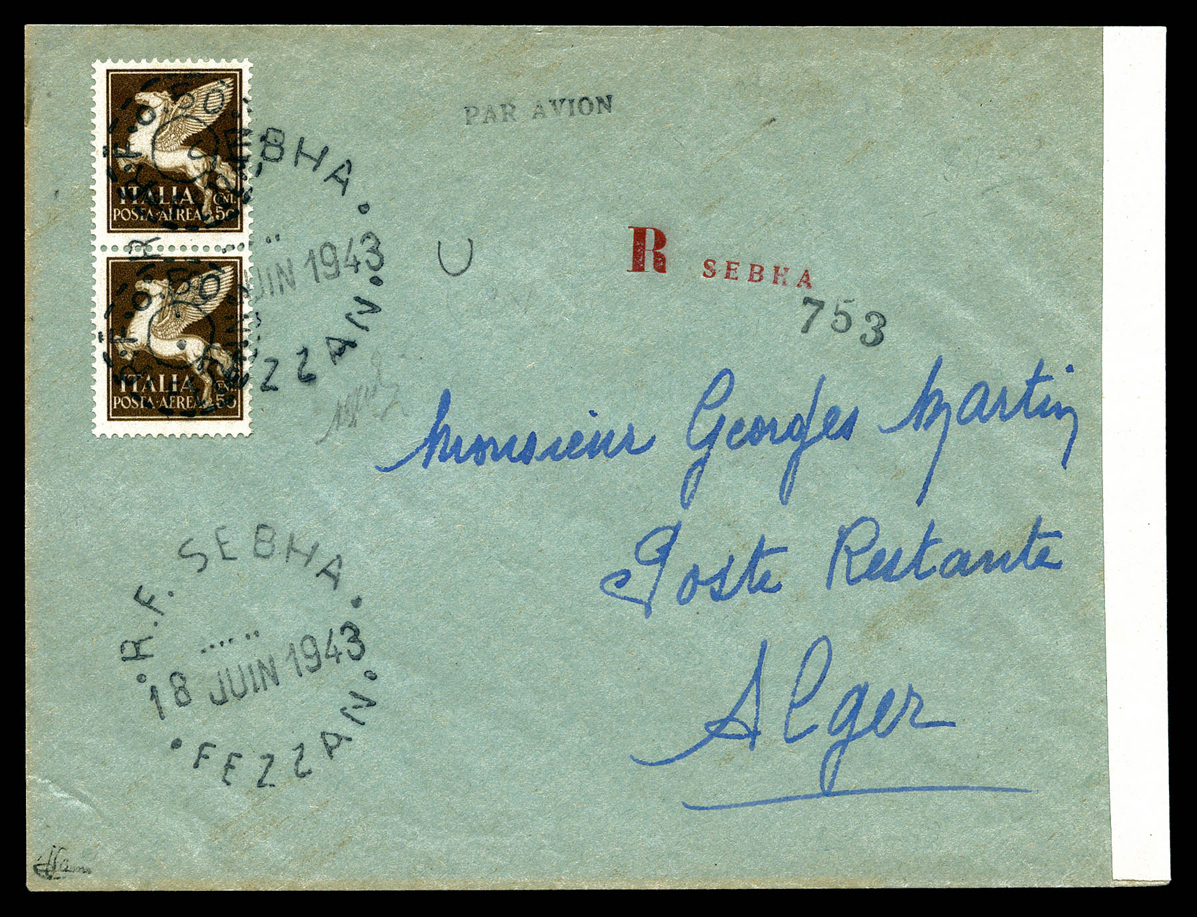 PAR AVION
ITALIA CNT.
POSTA-AEREA 50
SEBHA
JUIN 1943
FEZZAN
R SEBHA
753
ITALIA CNT.
POSTA-AEREA 50
Monsieur Georges Martin
Poste Restante
Alger
R.F. SEBHA
18 JUIN 1943
FEZZAN